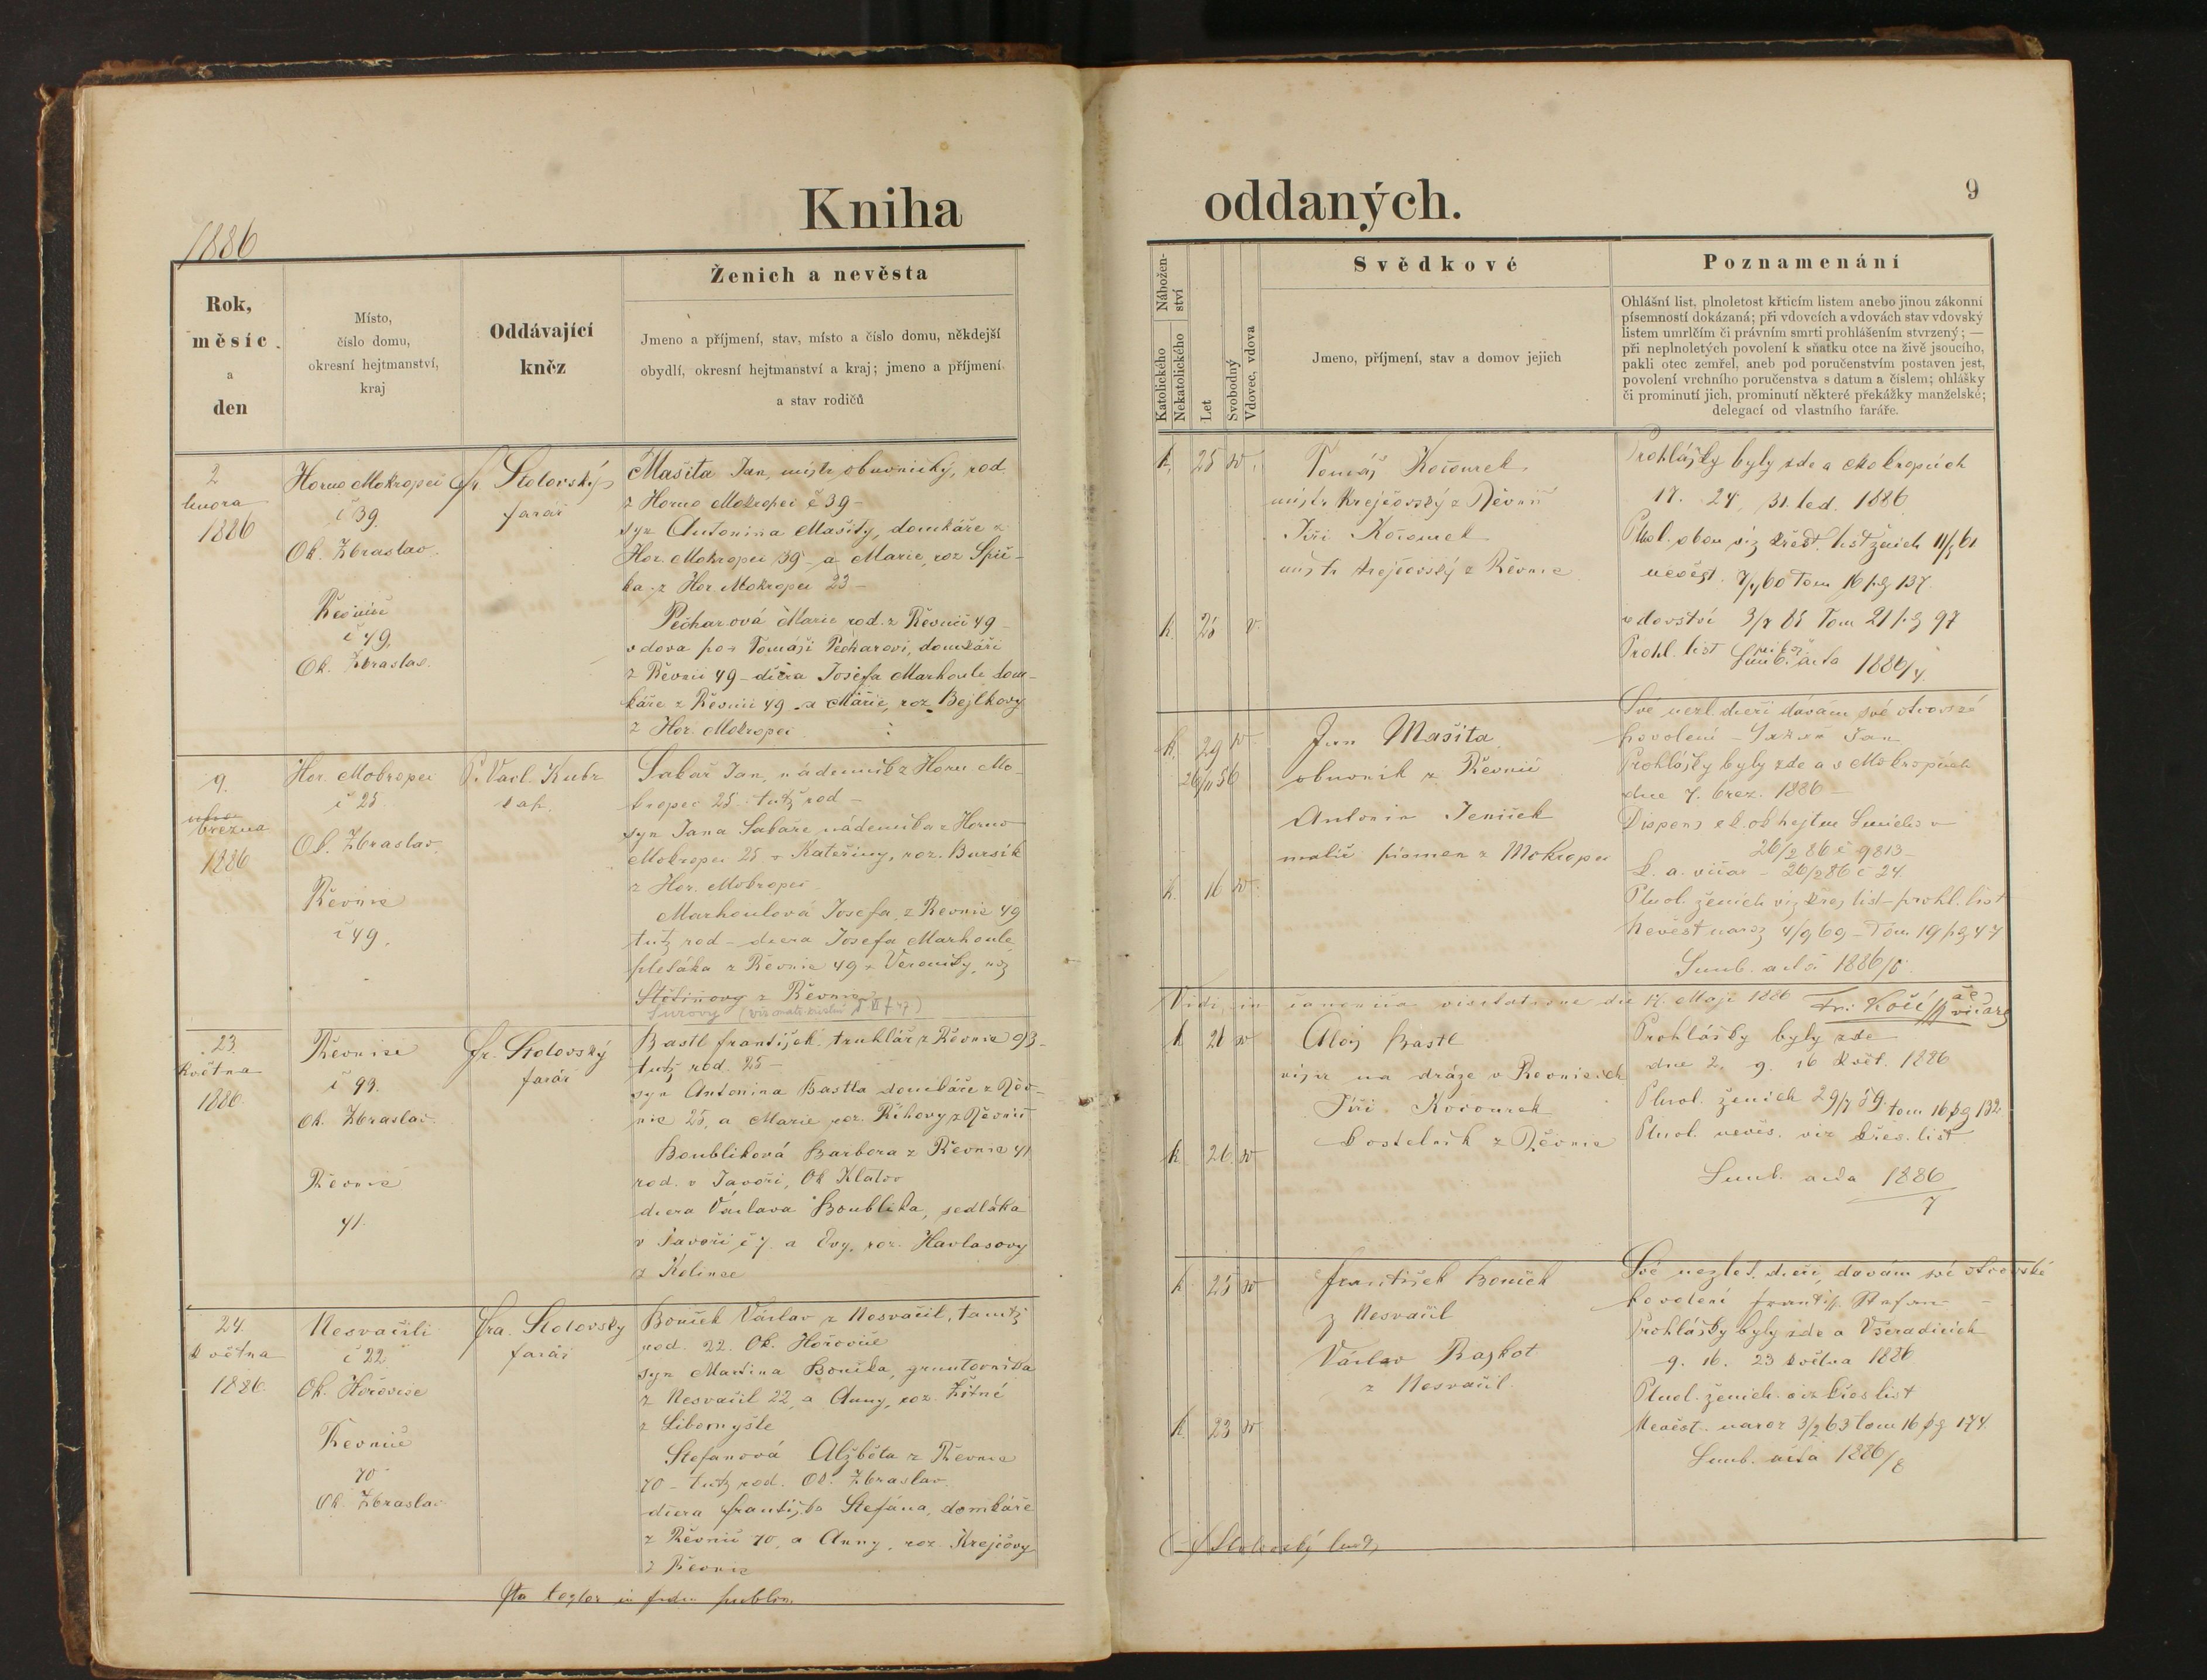 1886
Kniha
Rok,
měsíc
a
den
Místo,
číslo domu,
okresní hejtmanství,
kraj
Oddávající
kněz
Ženich a nevěsta
Jmeno a příjmení, stav, místo a číslo domu, někdejší
obydlí, okresní hejtmanství a kraj; jmeno a příjmení
a stav rodičů
2
února
1886
Horno Mokropci
č 39
Ok. Zbraslav.
Řevnice
č 49,
Ok. Zbraslav.
Fr Stolovský
farář
Mašita Jan, mistr obuvnický, rod
z Horno Mokropec č 39 -
syn Antonina Mašity, domkáře z
Hor. Mokropec 39 - a Marie, roz Špič-
ka z Hor. Mokropec 23 -
Pecharová Marie rod. z Řevnic 49 -
vdova po Tomáši Pecharovi, domkáři
z Řevnic 49 - dcera Josefa Marhoule dom-
káře z Řevnic 49 a Marie, roz Bejlkovy
z Hor. Mokropec
9.
března
1886
Hor. Mokropec
č 25
Ok. Zbraslav.
Řevnice
č 49.
P. Vacl. Kubr
kap.
Sabař Jan, nádenník z Horn Mo-
kropec 25 tutž rod -
syn Jana Sabaře nádenníka z Horno
Mokropec 25 a Kateřiny, roz. Bursík
z Hor. Mokropec
Marhoulová Josefa, z Řevnic 49
tutž rod - dcera Josefa Marhoule
z Řevnic 49 a Veroniky, roz
z Řevnic
23
května
1886.
Řevnice
č 93.
Ok. Zbraslav.
Řevnice
41.
Fr. Stolovský
farář
Bastl František, truhlář z Řevnic 93 -
tutž rod. 25 -
syn Antonina Bastla domkáře z Řev-
nic 25, a Marie roz. Říhovy z Řevnic
Boublíková Barbora z Řevnic 41
rod. v Javoří, Ok Klatov
dcera Václava Boublíka, sedláka
v Javoří č 7. a Evy, roz. Havlasovy
z Kolince
24.
května
1886.
Nesvačili
č 22
Ok. Hořovice
Řevnice
70
Ok. Zbraslav
Fra. Stolovský
farář
Boniček Václav z Nesvačil, tamtž
rod. 22. Ok. Hořovice
syn Martina Bonička, gruntovníka
z Nesvačil 22, a Anny, roz. Žitné
z Libomyšle
Stefanová Alžběta z Řevnic
70 - tutž rod. Ok. Zbraslav.
dcera Františka Stefána, domkáře
z Řevnic 70, a Anny, roz. Krejčovy
z Řevnic
oddaných.
9
Nábožen-
ství
Katolického
Nekatolického
Let
Svobodný
Vdovec, vdova
Svědkové
Jmeno, příjmení, stav a domov jejich
Poznamenání
Ohlášní list, plnoletost křticím listem anebo jinou zákonní
písemností dokázaná; při vdovcích a vdovách stav vdovský
listem umrlčím či právním smrti prohlášením stvrzený; —
při neplnoletých povolení k sňatku otce na živě jsoucího,
pakli otec zemřel, aneb pod poručenstvím postaven jest,
povolení vrchního poručenstva s datum a číslem; ohlášky
či prominutí jich, prominutí některé překážky manželské;
delegací od vlastního faráře.
k, 25 sv.
k. 25 v.
Tomáš Kočourek
mistr Krejčovský z Řevnic
Jiří Kočourek
mistr krejčovský z Řevnic
Prohlášky byly zde a Mokropcích
17. 24, 31. led. 1886
Plnol. obou viz křest. list ženich 11/5 61
nevěst. 7/4 60 Tom 16 pg 137
vdovství 3/7 85 Tom 21 pg 97
Prohl. list Sub. acta 1886/4.
k. 29 sv.
26/11 56
k. 16 sv.
Jan Mašita
obuvník z Řevnic
Antonín Jeníček
malíř písmen z Mokropec
Své nezl. dceři dávám své otcovské
povolení
Prohlášky byly zde a v Mokropcích
dne 7. břez. 1886 -
Dispens c.k. ok hejtm Smíchov
26/2 86 č 9813 -
k. a. vikar - 26/2 86 č 24.
Plnol. ženich viz křes list - prohl. list
Nevěst naroz 4/9 69 - Tom 19 pg 47
Sub. acta 1886/5.
Vidi in canonica visitatione die 17. Maji 1886 Fr. Kočí
vikář
k 26 sv
k 26. sv
Alois Bastl
na dráze v Řevnicích
Jiří Kočourek
kostelník z Řevnic
Prohlášky byly zde
dne 2. 9. 16 květ. 1886
Plnol. ženich 29/7 59. tom 16 pg 132
Plnol. nevěs. viz křes. list
Sub. acta 1886
7
k 25 sv
k. 23 sv
František Boniček
z Nesvačil
Václav
z Nesvačil.
Své nezlet. dceři, davám své otcovské
povolení Františ. Stefan -
Prohlášky byly zde a Všeradicích
9. 16. 23 května 1886
Plnol. ženich viz křes list
Nevěst. naroz 3/2 63 tom 16 pg 174.
Sub. acta 1886/8